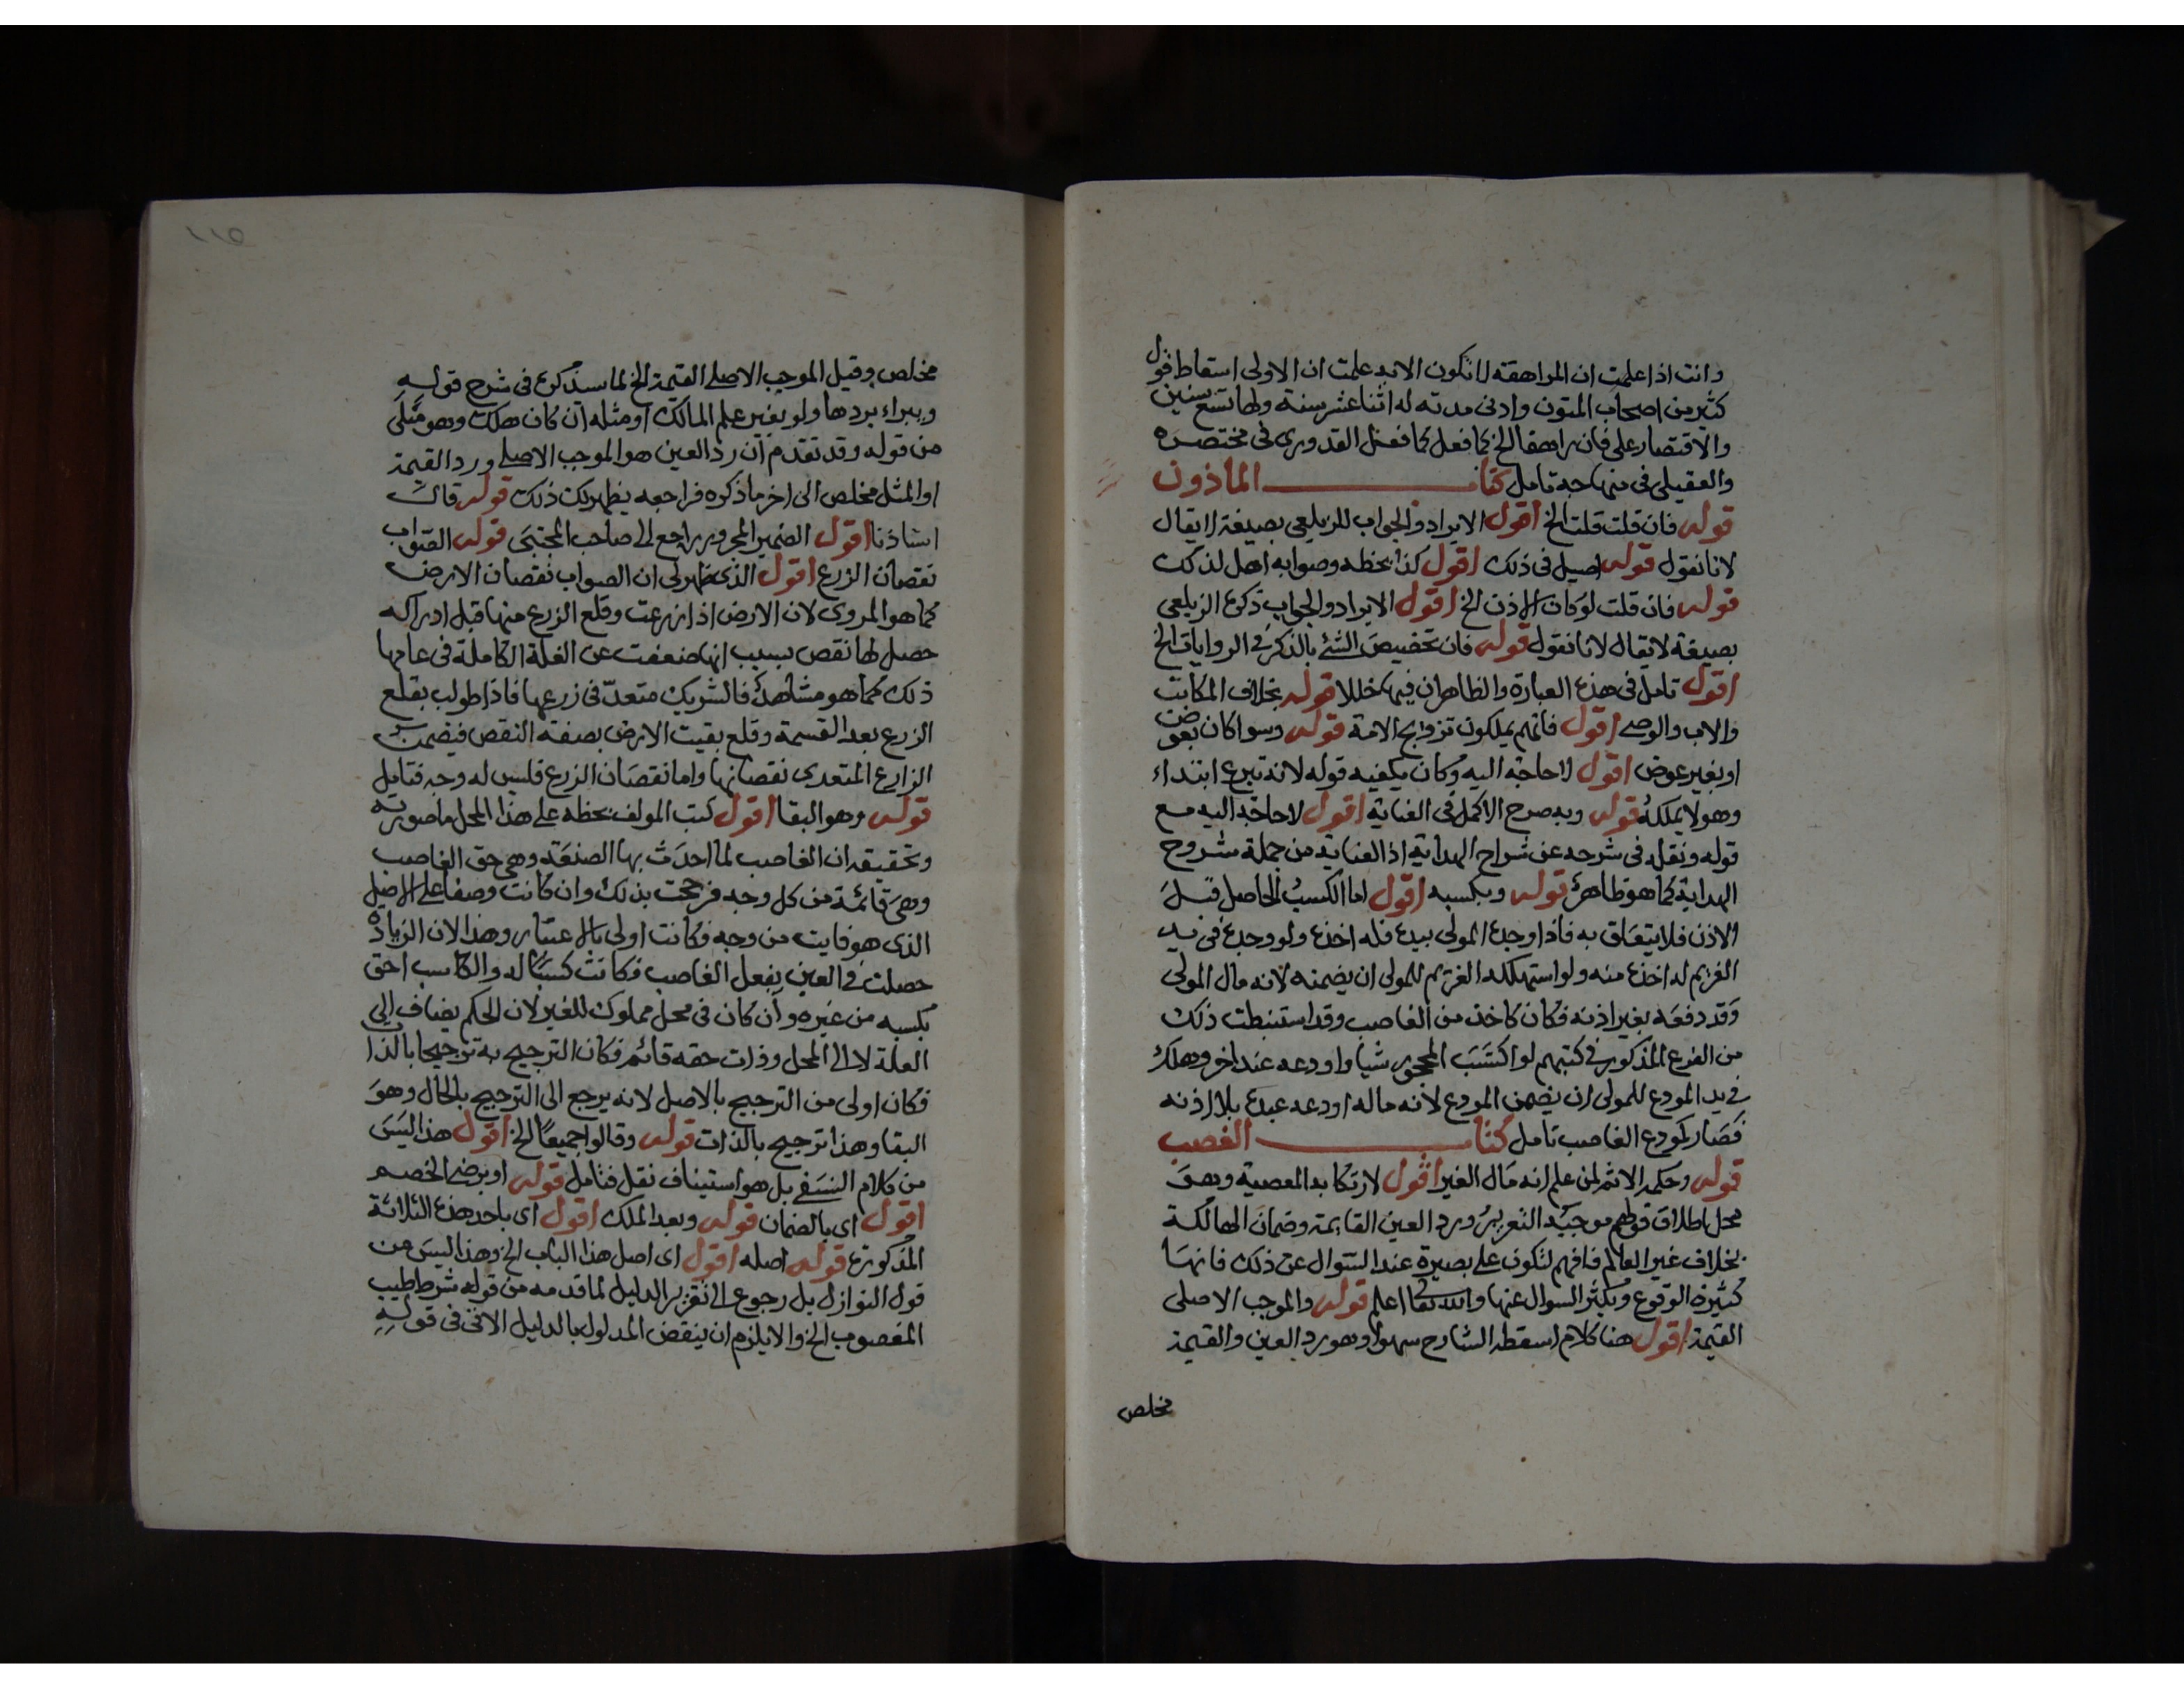 وانت اذا علمت ان المراهقة لا تكون الا به علمت ان الاولى اسقاط قول
كثير من اصحاب المتون وادنى مدته له اثنا عشر سنة ولها تسع سنين
والاقتصار على فان راهقا الخ كما فعل كما فعل القدوري في مختصره
والعقيلي في منهاجه تامل كتاب الماذون
قوله فان قلت قلت الخ اقول الايراد والجواب للزيلعي بصيغة لا يقال
لانا نقول قوله اصيل في ذلك اقول كذا بخطه وصوابه اهل لذلك
قوله فان قلت لو كان الاذن الخ اقول الايراد والجواب ذكره الزيلعي
بصيغة لا يقال لانا نقول قوله فان تخصيص الشئ بالذكر في الروايات الخ
اقول تامل في هذه العبارة والظاهر ان فيها خللا قوله بخلاف المكاتب
والاب والوصي اقول فانهم يملكون تزويج الامة قوله وسوا كان بعوض
او بغير عوض اقول لا حاجة اليه وكان يكفيه قوله لانه تبرع ابتداء
وهو لا يملكه قوله وبه صرح الاكمل في العناية اقول لا حاجة اليه مع
قوله ونقله في شرحه عن شراح الهداية اذ العناية من جملة شروح
الهداية كما هو ظاهر قوله وبكسبه اقول اما الكسب الحاصل قبل
الاذن فلا يتعلق به فاذا وجده المولى بيده فله اخذه ولو وجده في يد
الغريم له اخذه منه ولو استهلكه الغريم للمولى ان يضمنه لانه مال المولى
وقد دفعه بغير اذنه فكان كاخذ من الغاصب وقد استنبطت ذلك
من الفرع المذكور في كتبهم لو اكتسب المحجور شيا واودعه عند اخر وهلك
في يد المودع للمولى ان يضمن المودع لانه ماله اودعه عبده بلا اذنه
فصار كمودع الغاصب تامل كتاب الغصب
قوله وحكمه الاثم لمن علم انه مال الغير اقول لارتكابه المعصية وهو
محل اطلاق قولهم موجبه التعزير ورد العين القايمة وضمان الهالكة
بخلاف غير العالم فافهم لتكون على بصيرة عند السوال عن ذلك فانها
كثيرة الوقوع ويكثر السوال عنها والله تعالى اعلم قوله والموجب الاصلي
القيمة اقول هنا كلام اسقطه الشارح سهوا وهو رد العين والقيمة
مخلص
١١٥
مخلص وقيل الموجب الاصلي القيمة الخ لما سنذكره في شرح قوله
ويبراء بردها ولو بغير علم المالك او مثله ان كان هلك وهو مثلي
من قوله وقد تقدم ان رد العين هو الموجب الاصلي ورد القيمة
او المثل مخلص الى اخر ما ذكره فراجعه يظهر لك ذلك قوله قال
استاذنا اقول الضمير المجرور راجع الى صاحب المجتبى قوله الصواب
نقصان الزرع اقول الذي يظهر لي ان الصواب نقصان الارض
كما هو المروي لان الارض اذا زرعت وقلع الزرع منها قبل ادراكه
حصل لها نقص بسبب انها ضعفت عن الغلة الكاملة في عامها
ذلك كما هو مشاهد فالشريك متعد في زرعها فاذا طولب بقلع
الزرع بعد القسمة وقلع بقيت الارض بصفة النقص فيضمن
الزارع المتعدي نقصانها واما نقصان الزرع فليس له وجه فتامل
قوله وهو البقا اقول كتب المولف بخطه على هذا المحل ما صورته
وتحقيقه ان الغاصب لما احدث بها الصنعة وهي حق الغاصب
وهي قائمة من كل وجه فرجحت بذلك وان كانت وصفا على الاصل
الذي هو فايت من وجه فكانت اولى بالاعتبار وهذا لان الزيادة
حصلت في العين بفعل الغاصب فكانت كسبا له والكاسب احق
بكسبه من غيره وان كان في محل مملوك للغير لان الحكم يضاف الى
العلة لا الى المحل وذات حقه قائم فكان الترجيح به ترجيحا بالذات
فكان اولى من الترجيح بالاصل لانه يرجع الى الترجيح بالحال وهو
البقا وهذا ترجيح بالذات قوله وقالوا جميعا الخ اقول هذا ليس
من كلام النسفي بل هو استيناف نقل فتامل قوله او برضى الخصم
اقول اى بالضمان قوله وبعد الملك اقول اى باحد هذه الثلاثة
المذكورة قوله اصله اقول اى اصل هذا الباب الخ وهذا ليس من
قول النوازل بل رجوع الى تقرير الدليل لما قدمه من قوله شرط طيب
المغصوب الخ والا يلزم ان ينقض المدلول بالدليل الاتي في قوله